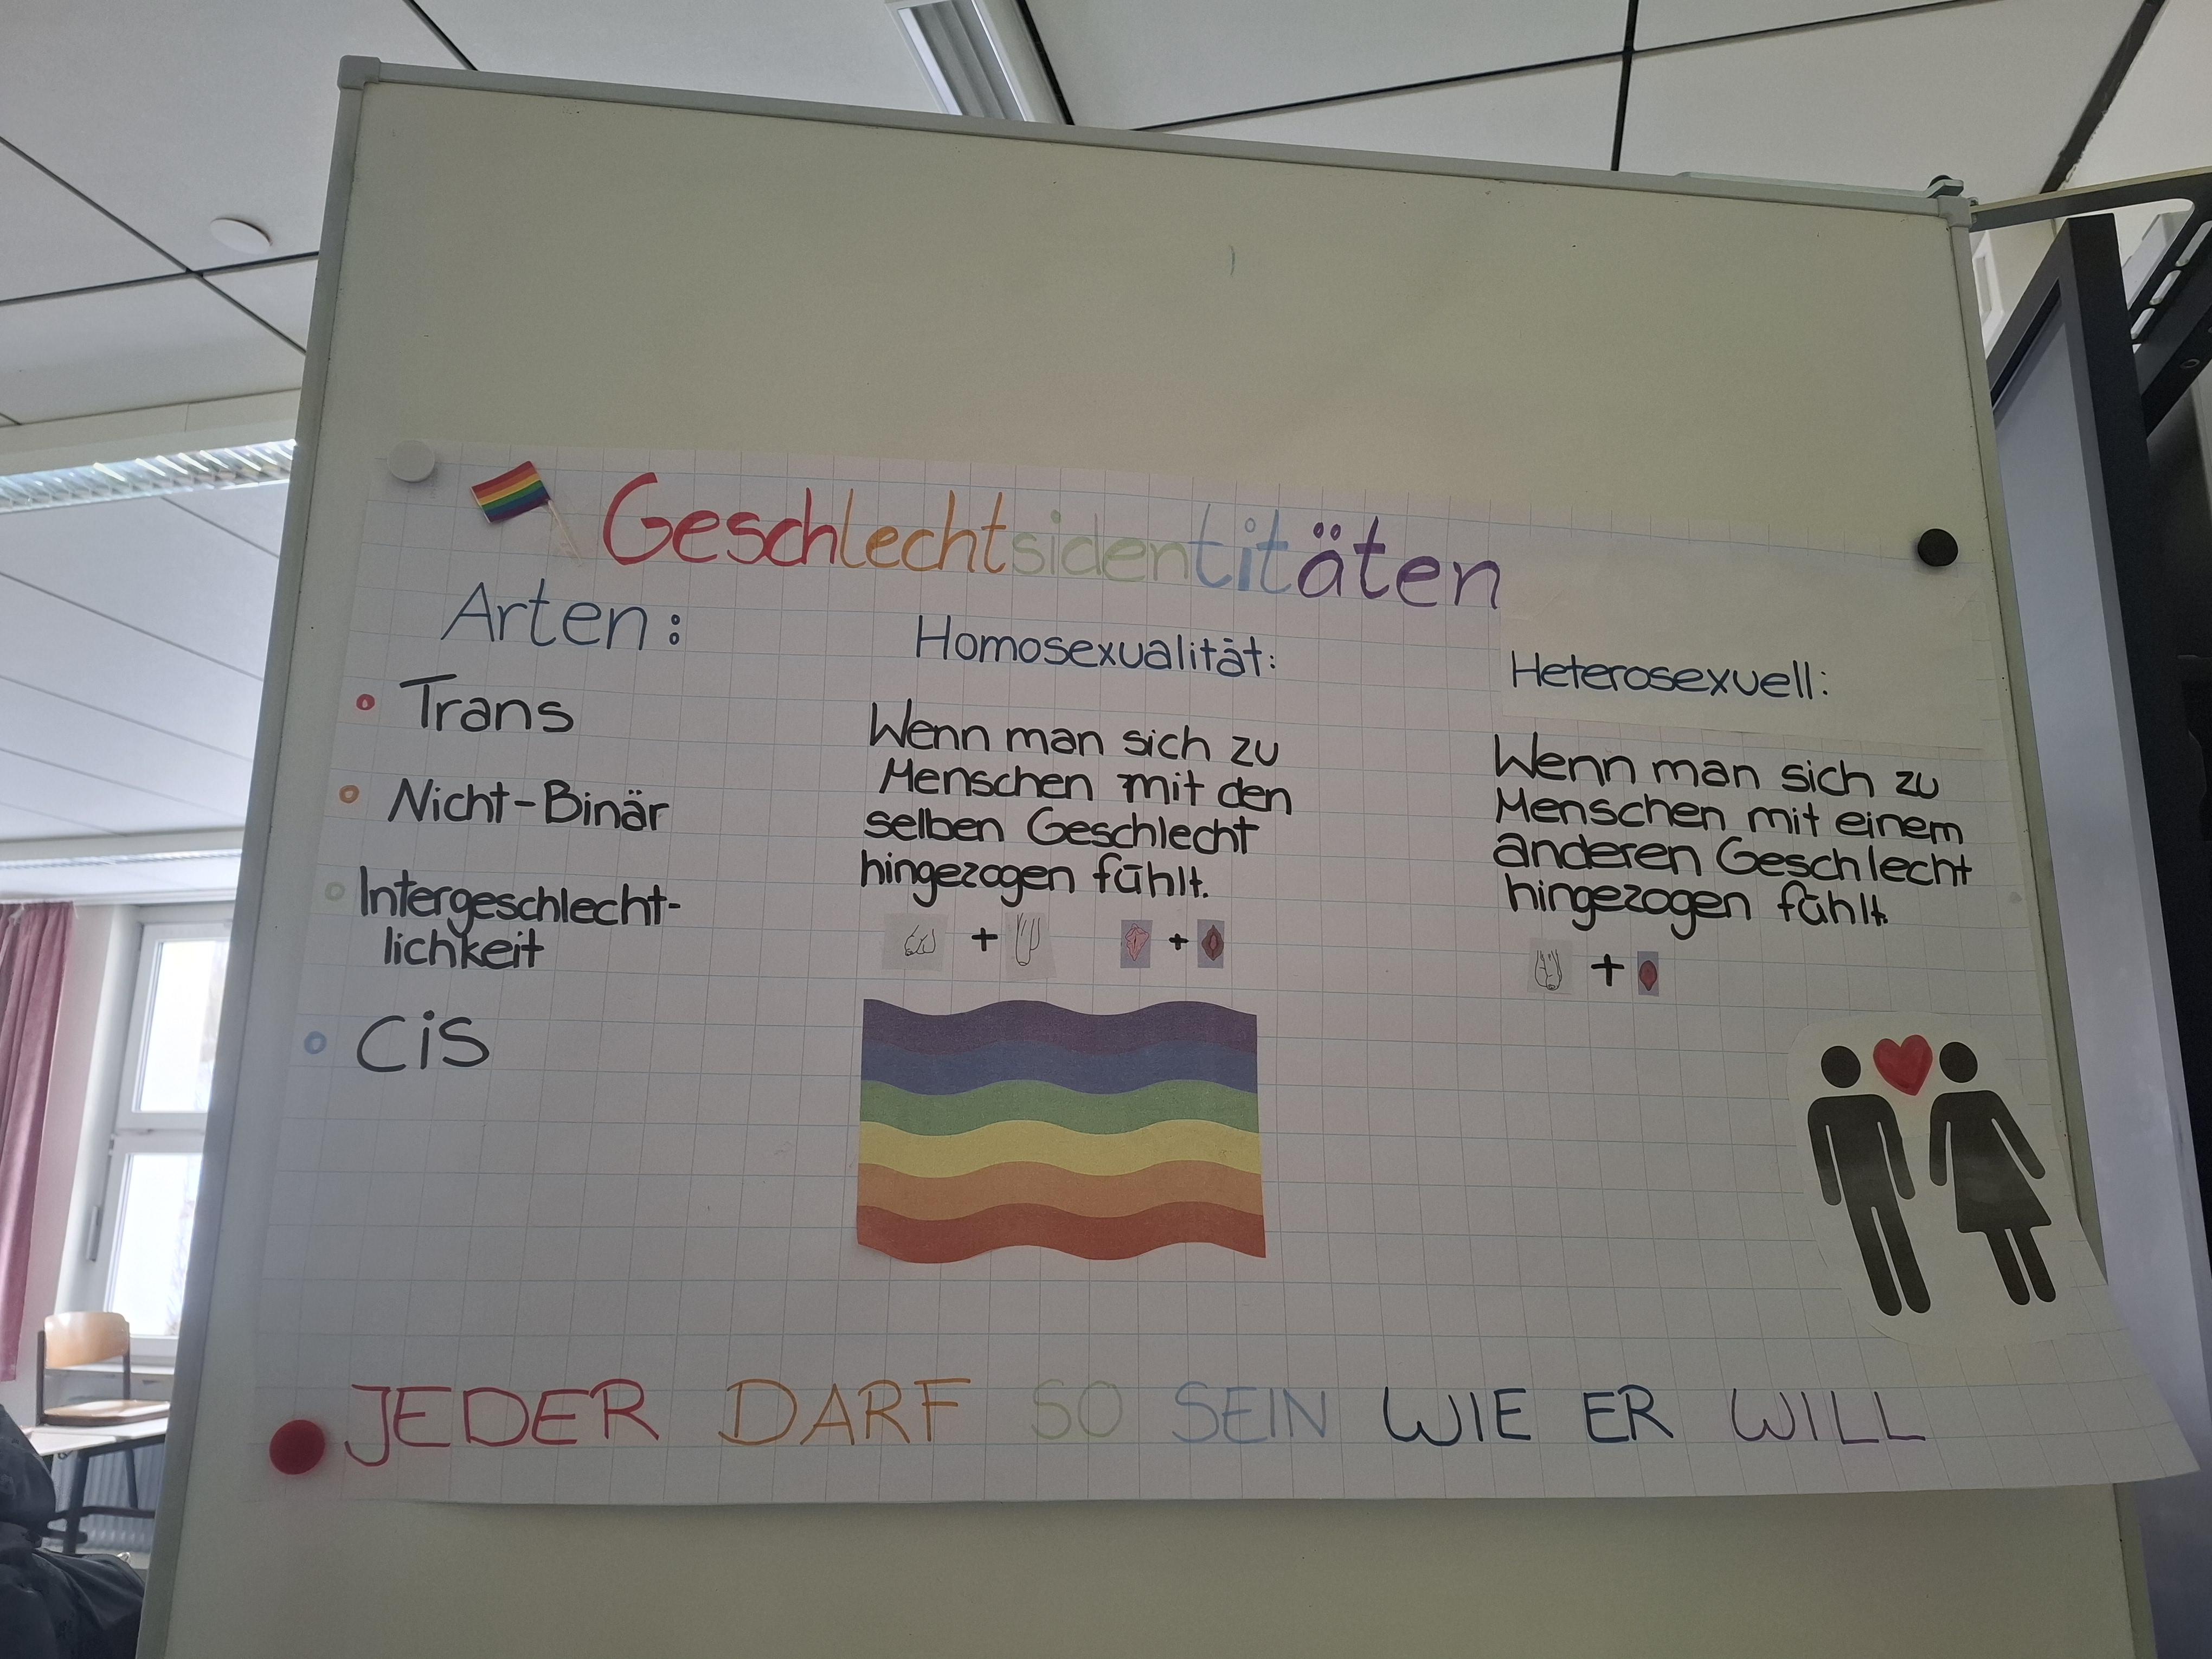 Geschlechtsidentitäten
Arten:
Trans
Nicht-Binär
Intergeschlecht-
lichkeit
Cis
Homosexualität:
Wenn man sich zu
Menschen mit den
selben Geschlecht
hingezogen fühlt.
+
+
Heterosexuell:
Wenn man sich zu
Menschen mit einem
anderen Geschlecht
hingezogen fühlt.
+
JEDER DARF SO SEIN WIE ER WILL